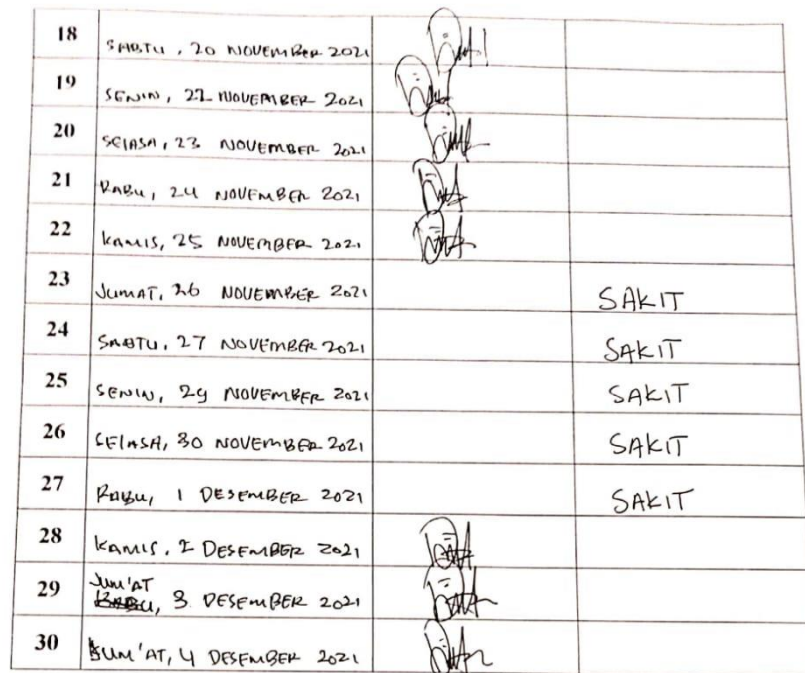 18 SABTU, 20 NOVEMBER 2021
19 SENIN, 22 NOVEMBER 2021
20 SELASA, 23 NOVEMBER 2021
21 RABU, 24 NOVEMBER 2021
22 KAMIS, 25 NOVEMBER 2021
23 JUMAT, 26 NOVEMBER 2021 SAKIT
24 SABTU, 27 NOVEMBER 2021 SAKIT
25 SENIN, 29 NOVEMBER 2021 SAKIT
26 SELASA, 30 NOVEMBER 2021 SAKIT
27 RABU, 1 DESEMBER 2021 SAKIT
28 KAMIS, 2 DESEMBER 2021
JUM'AT
29 RABU, 3 DESEMBER 2021
30 JUM'AT, 4 DESEMBER 2021